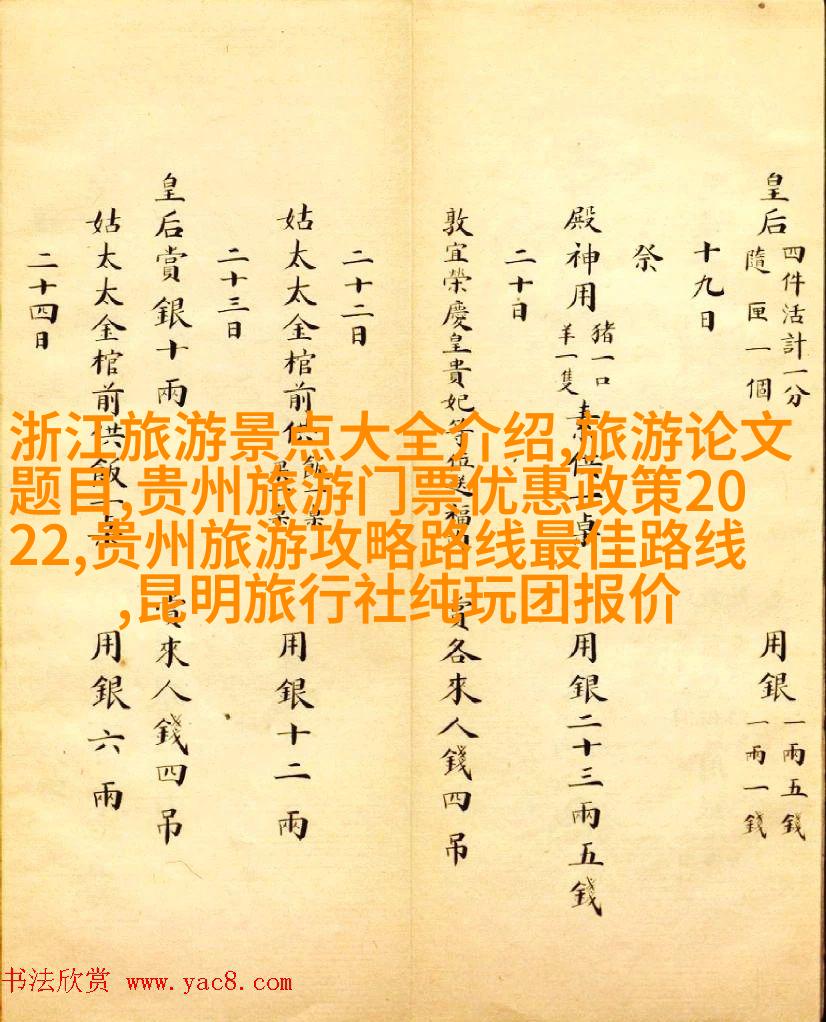 皇后
四件活計一分
隨匣一個
用銀
一兩五錢
一兩一錢
十九日
祭
殿神用
豬一口
羊一隻
素供一桌
用銀二十三兩五錢
二十日
敦宜榮慶皇貴妃等位送福
賞各來人錢四吊
二十二日
姑太太金棺前供
飯一桌
用銀十二兩
二十三日
皇后賞銀十兩
賞來人錢四吊
姑太太金棺前供飯一桌
用銀六兩
二十四日
浙江旅游景点大全介绍,旅游论文
题目,贵州旅游门票优惠政策20
22,贵州旅游攻略路线最佳路线
,昆明旅行社纯玩团报价
书法欣赏 www.yac8.com